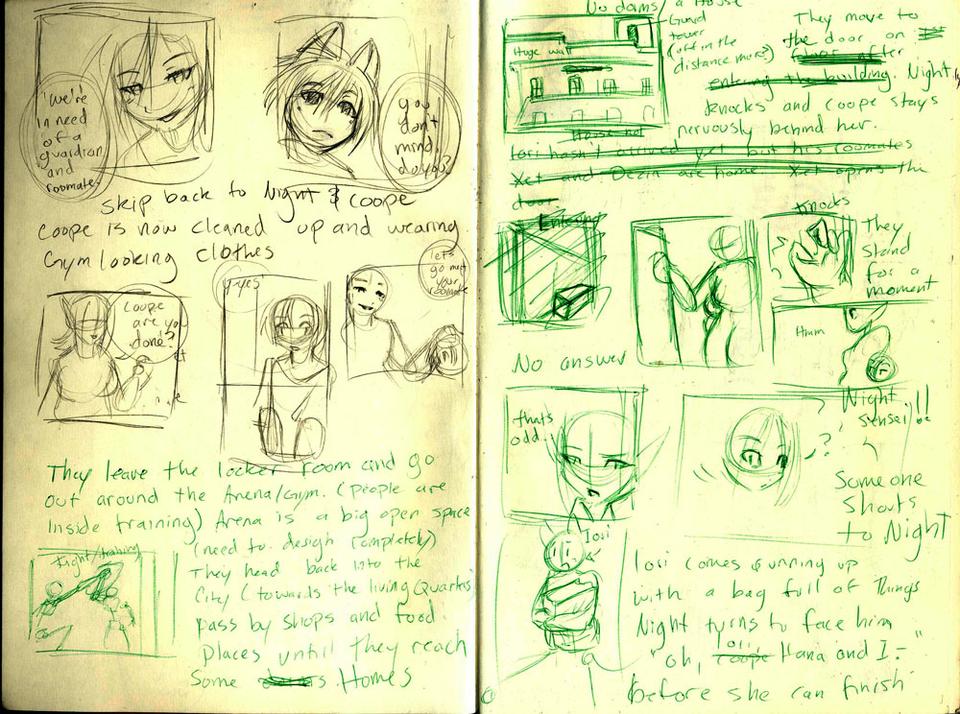 "We're
in need
of a
guardian
and
roomate.
you
don't
mind,
do you?
skip back to Night & coope
Coope is now cleaned up and wearing
Gym looking clothes
Coope
are you
done?
y-yes
let's
go meet
your
roomate
They leave the locker room and go
out around the Arena/Gym. (people are
inside training) Arena is a big open space
(need to design completely)
fight/training
They head back into the
City (towards the living Quarters
pass by shops and food
places untill they reach
some Homes
No dorms / a House
Guard
tower
(off in the
distance more?)
Huge wall
They move to
the door on
after
entering the building. Night
knocks and coope stays
nervously behind her.
Iori hasn't arrived yet but his roomates
Xet and Dezin are home Xet opens the
door
Entering
Knocks
They
stand
for a
moment
Hmm
No answer
thats
odd.
?
?
Night
sensei!!
Someone
shouts
to Night
Iori
Iori comes running up
with a bag full of Things
Night turns to face him
"oh, Iori, coope Hana and I-"
before she can finish